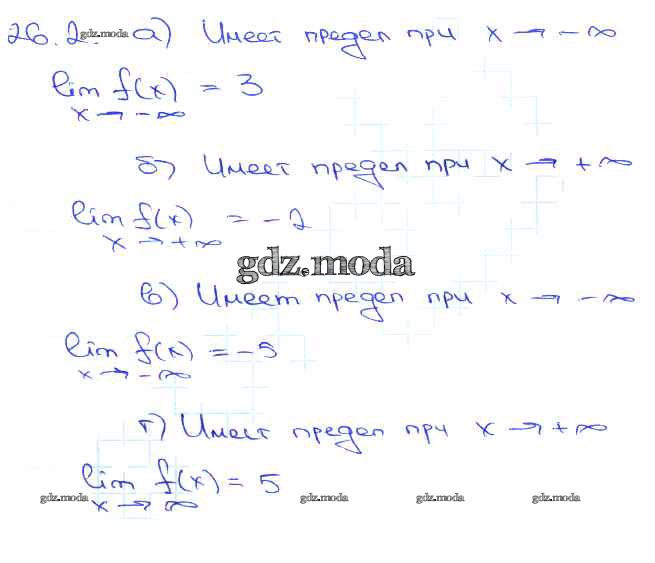 26.2. gdz.moda а) Имеет предел при x → -∞
lim f(x) = 3
x → -∞
б) Имеет предел при x → +∞
lim f(x) = -2
x → +∞
gdz.moda
в) Имеет предел при x → -∞
lim f(x) = -5
x → -∞
г) Имеет предел при x → +∞
lim f(x) = 5
x → ∞
gdz.moda gdz.moda gdz.moda gdz.moda